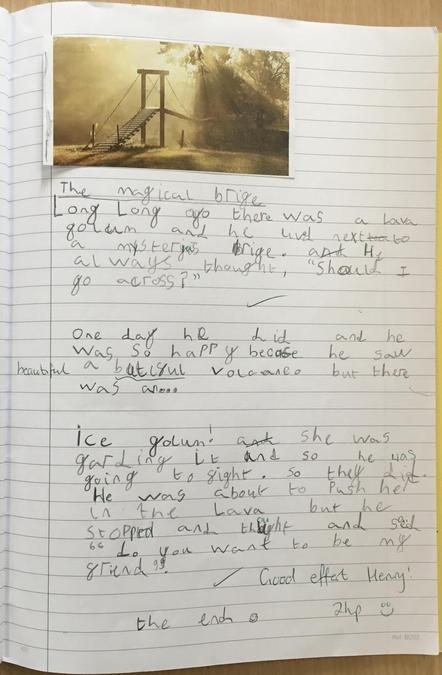 The magical brige
Long Long ago there was a lava
golum and he livd next to
a mysteryas brige. He
always thought, "Should I
go across?"
One day he did and he
was so happy because he saw
beautiful a butiful volcaneo but there
was an...
ice golum! she was
garding it and so he was
going to fight. so they did.
He was about to push her
in the Lava but he
stopped and thught and said
"do you want to be my
friend".
Good effort Henry!
the end. 2hp